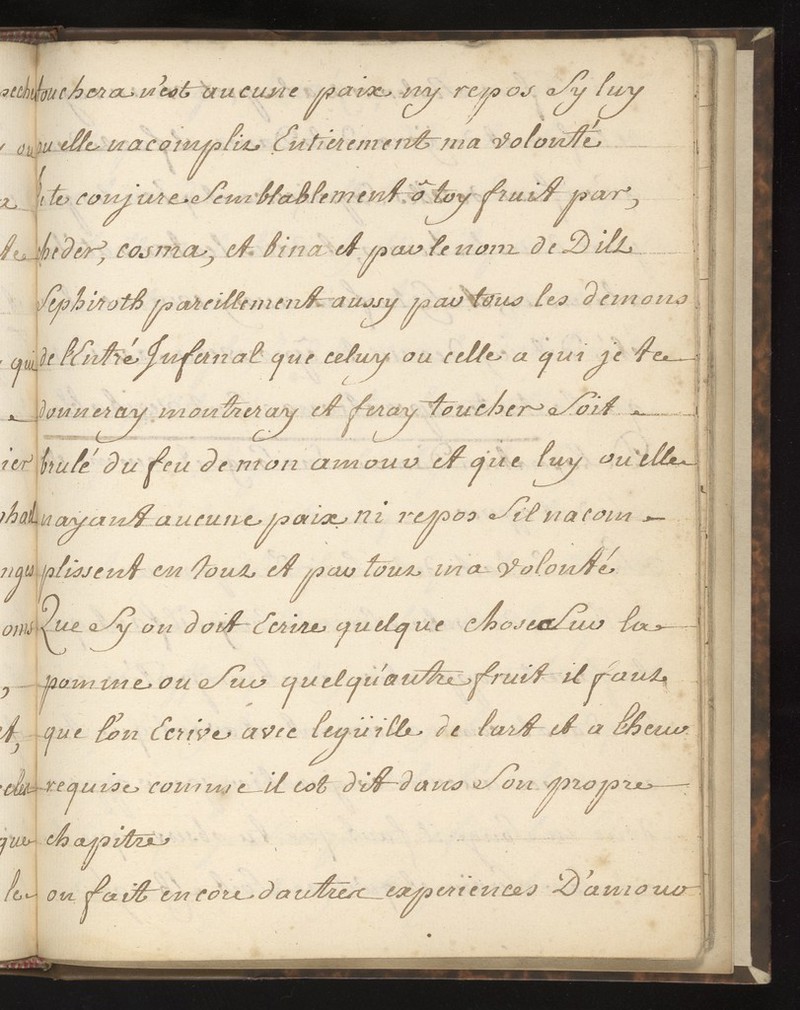 touchera n'est aucune paix ny repos Sy luy
ou elle nacomplit Entierement ma volonté
Je te conjure Semblablement ô toy fruit par,
heder, cosma, et bina et par le nom de Dill
Sephiroth pareillement aussy par tous les demons
de l'Entré Infernal que celuy ou celle a qui je te
donneray montreray et feray toucher Soit
brulé du feu de mon amour et que luy ou elle
nayant aucune paix ni repos Sil nacom-
plissent en tout et par tout ma volonté
Que Sy on doit Ecrire quelque chose Sur la
pomme ou Sur quelqu'autre fruit il faut
que l'on Ecrive avec legüille de lart et a lheur
requise comme il est dit dans Son propre
chapitre
on fait encore dautres experiences D'amour